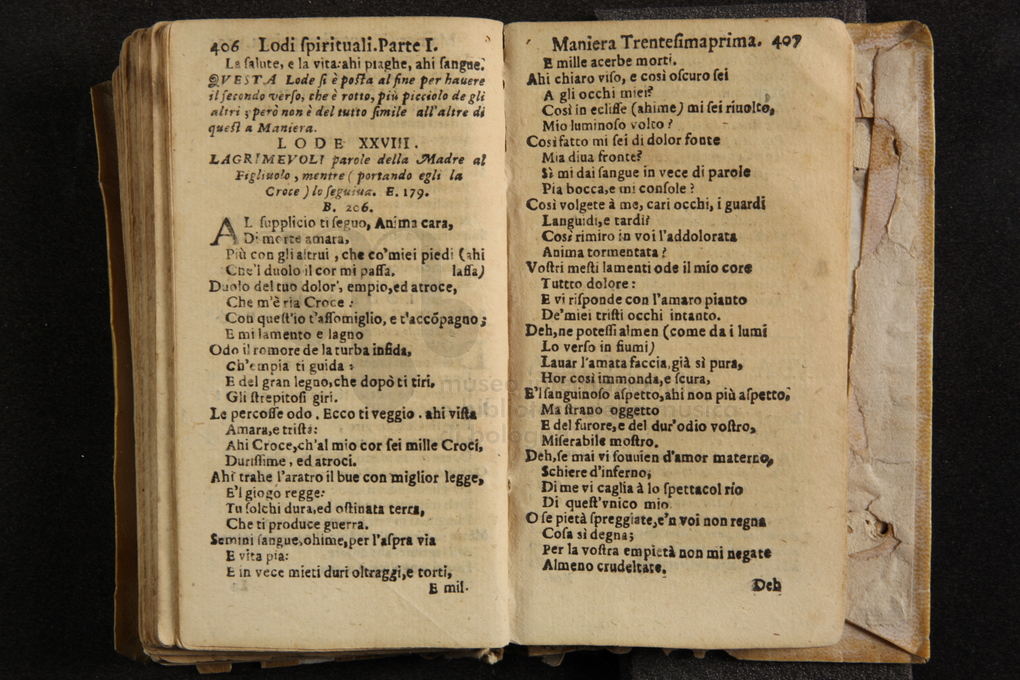 406 Lodi ſpirituali.Parte I.
La ſalute, e la vita:ahi piaghe, ahi ſangue.
QVESTA Lode ſi è poſta al fine per hauere
il ſecondo verſo, che è rotto, più picciolo de gli
altri ; però non è del tutto ſimile all'altre di
queſt a Maniera.
LODE XXVIII.
LAGRIMEVOLI parole della Madre al
Figliuolo, mentre ( portando egli la
Croce ) lo ſeguiua. E. 179.
B. 206.
AL ſupplicio ti ſeguo, Anima cara,
Di morte amara,
Più con gli altrui , che co'miei piedi (ahi
Che'l duolo il cor mi paſſa. laſſa)
Duolo del tuo dolor', empio,ed atroce,
Che m'è ria Croce :
Con queſt'io t'aſſomiglio, e t'accōpagno;
E mi lamento e lagno
Odo il romore de la turba infida,
Ch'empia ti guida :
E del gran legno,che dopò ti tiri,
Gli ſtrepitoſi giri.
Le percoſſe odo . Ecco ti veggio . ahi viſta
Amara,e triſta:
Ahi Croce,ch'al mio cor ſei mille Croci,
Duriſſime , ed atroci.
Ahi trahe l'aratro il bue con miglior legge,
E'l giogo regge:
Tu ſolchi dura,ed oſtinata terra,
Che ti produce guerra.
Semini ſangue,ohime,per l'aſpra via
E vita pia:
E in vece mieti duri oltraggi,e torti,
E mil-
Maniera Trenteſimaprima. 407
E mille acerbe morti.
Ahi chiaro viſo, e così oſcuro ſei
A gli occhi miei?
Così in ecliſſe (ahime) mi ſei riuolto,
Mio luminoſo volto ?
Cosi fatto mi ſei di dolor fonte
Mia diua fronte?
Sì mi dai ſangue in vece di parole
Pia bocca,e mi conſole ?
Così volgete à me, cari occhi, i guardi
Languidi,e tardi?
Così rimiro in voi l'addolorata
Anima tormentata ?
Voſtri meſti lamenti ode il mio core
Tuttto dolore :
E vi riſponde con l'amaro pianto
De'miei triſti occhi intanto.
Deh,ne poteſſi almen (come da i lumi
Lo verſo in fiumi)
Lauar l'amata faccia,già sì pura,
Hor così immonda,e ſcura,
E'l ſanguinoſo aſpetto,ahi non più aſpetto,
Ma ſtrano oggetto
E del furore,e del dur'odio voſtro,
Miſerabile moſtro.
Deh,ſe mai vi ſouuien d'amor materno,
Schiere d'inferno;
Di me vi caglia à lo ſpettacol rio
Di queſt'vnico mio
O ſe pietà ſpreggiate,e'n voi non regna
Coſa sì degna;
Per la voſtra empietà non mi negate
Almeno crudeltate,
Deh